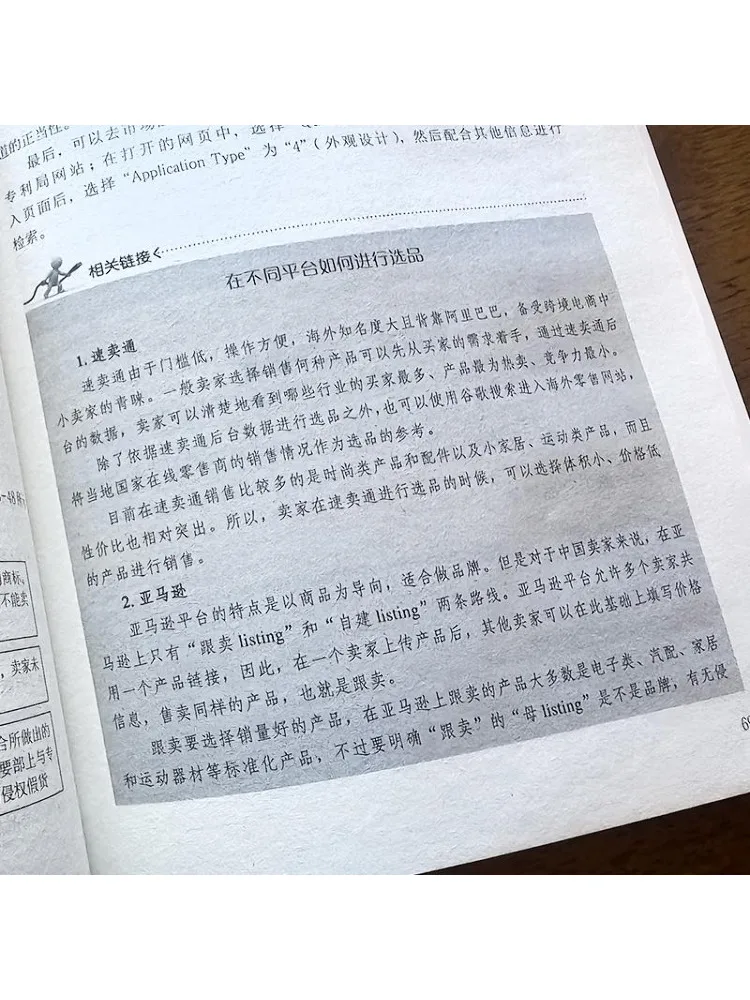 道的正当性。
最后，可以去市场
专利局网站；在打开的网页中，选择
入页面后，选择“Application Type”为“4”（外观设计），然后配合其他信息进行
检索。
相关链接
在不同平台如何进行选品
1. 速卖通
速卖通由于门槛低，操作方便，海外知名度大且背靠阿里巴巴，备受跨境电商中
小卖家的青睐。一般卖家选择销售何种产品可以先从买家的需求着手，通过速卖通后
台的数据，卖家可以清楚地看到哪些行业的买家最多、产品最为热卖、竞争力最小。
除了依据速卖通后台数据进行选品之外，也可以使用谷歌搜索进入海外零售网站，
将当地国家在线零售商的销售情况作为选品的参考。
目前在速卖通销售比较多的是时尚类产品和配件以及小家居、运动类产品，而且
性价比也相对突出。所以，卖家在速卖通进行选品的时候，可以选择体积小、价格低
的产品进行销售。
2. 亚马逊
亚马逊平台的特点是以商品为导向，适合做品牌。但是对于中国卖家来说，在亚
马逊上只有“跟卖 listing”和“自建 listing”两条路线。亚马逊平台允许多个卖家共
用一个产品链接，因此，在一个卖家上传产品后，其他卖家可以在此基础上填写价格
信息，售卖同样的产品，也就是跟卖。
跟卖要选择销量好的产品，在亚马逊上跟卖的产品大多数是电子类、汽配、家居
和运动器材等标准化产品，不过要明确“跟卖”的“母 listing”是不是品牌，有无侵
商标、
不能卖
，卖家未
合所做出的
要部上与专
侵权假货